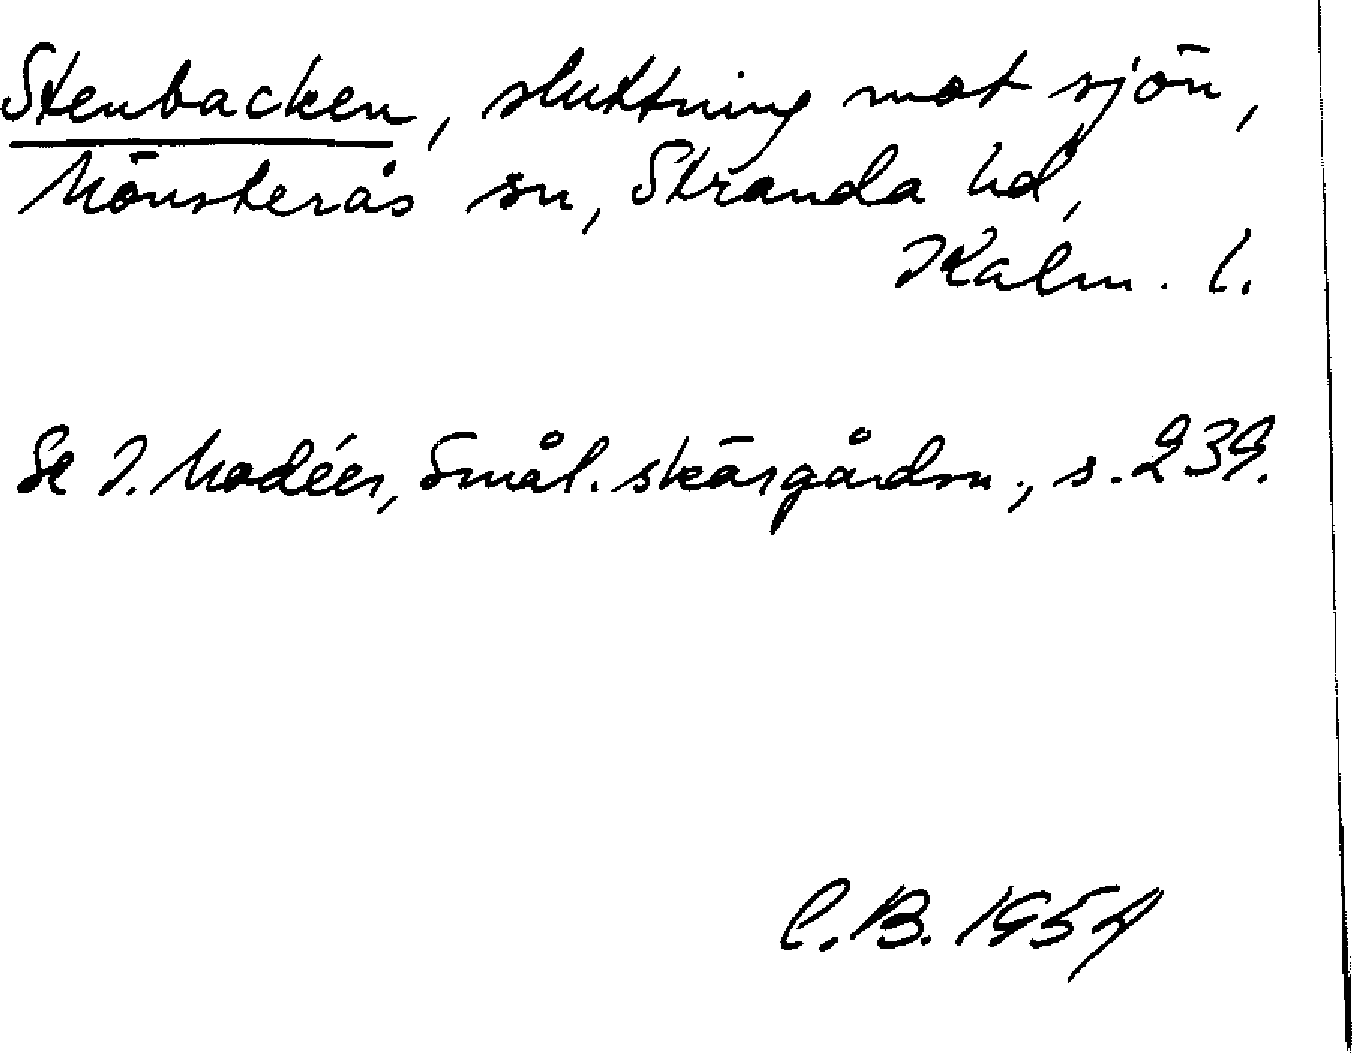 Stenbacken, sluttning mot sjön,
Mönsterås sn, Stranda hd,
Kalm. l.
Se I. Modéer, Smål. skärgårdsn., s. 239.
C.B. 1954